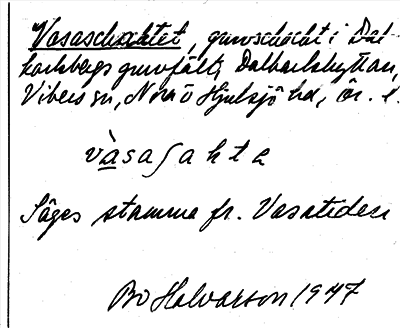 Vasaschachtet, gruvschacht i Dal-
karlsbergs gruvfält, Dalkarlshyttan,
Vikers sn, Nora o Hjulsjö hd, Ör. l.
vàsaʃakte
Säges stamma fr. Vasatiden
Bo Halvarson 1947